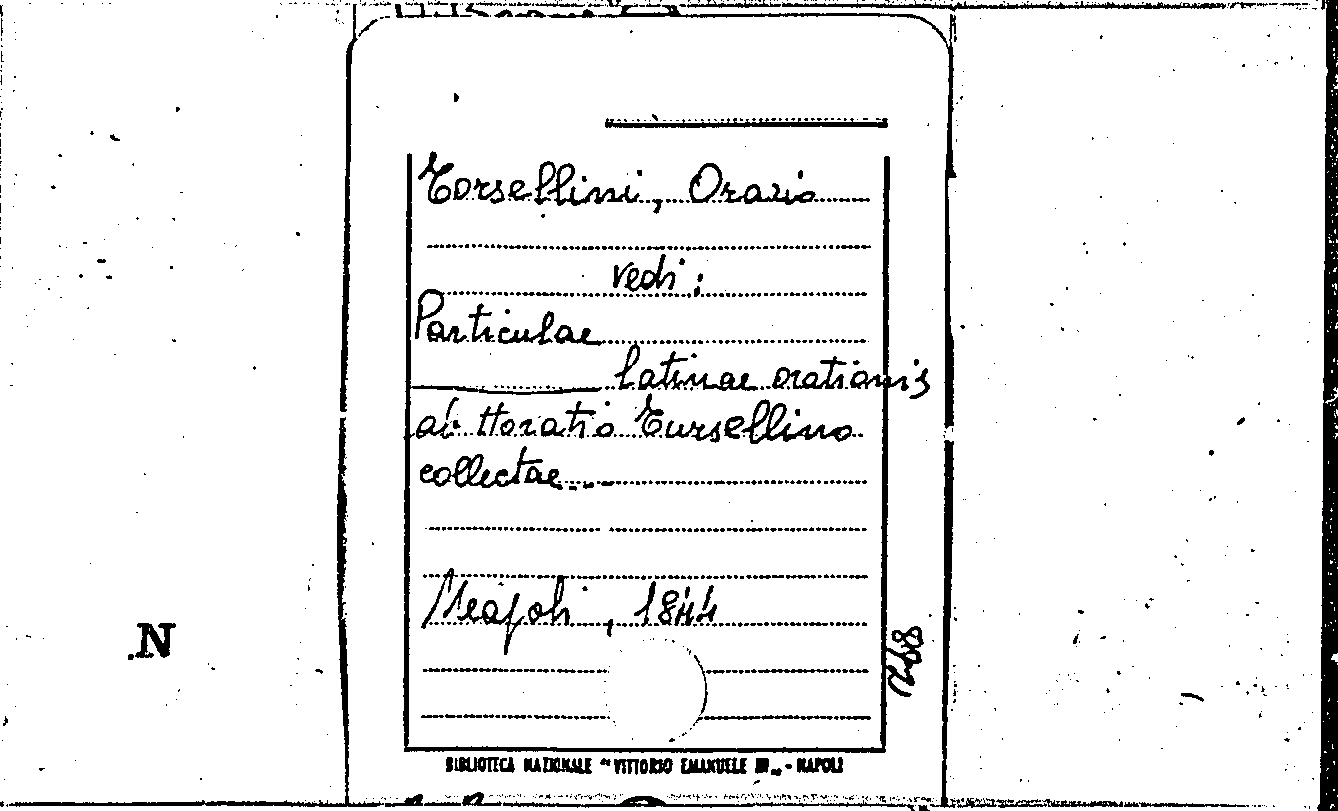 Torsellini, Orazio
vedi:
Particulae
latinae orationis
ab Horatio Tursellino
collectae...
Neapoli, 1844
N
BIBLIOTECA NAZIONALE "VITTORIO EMANUELE III„ - NAPOLI